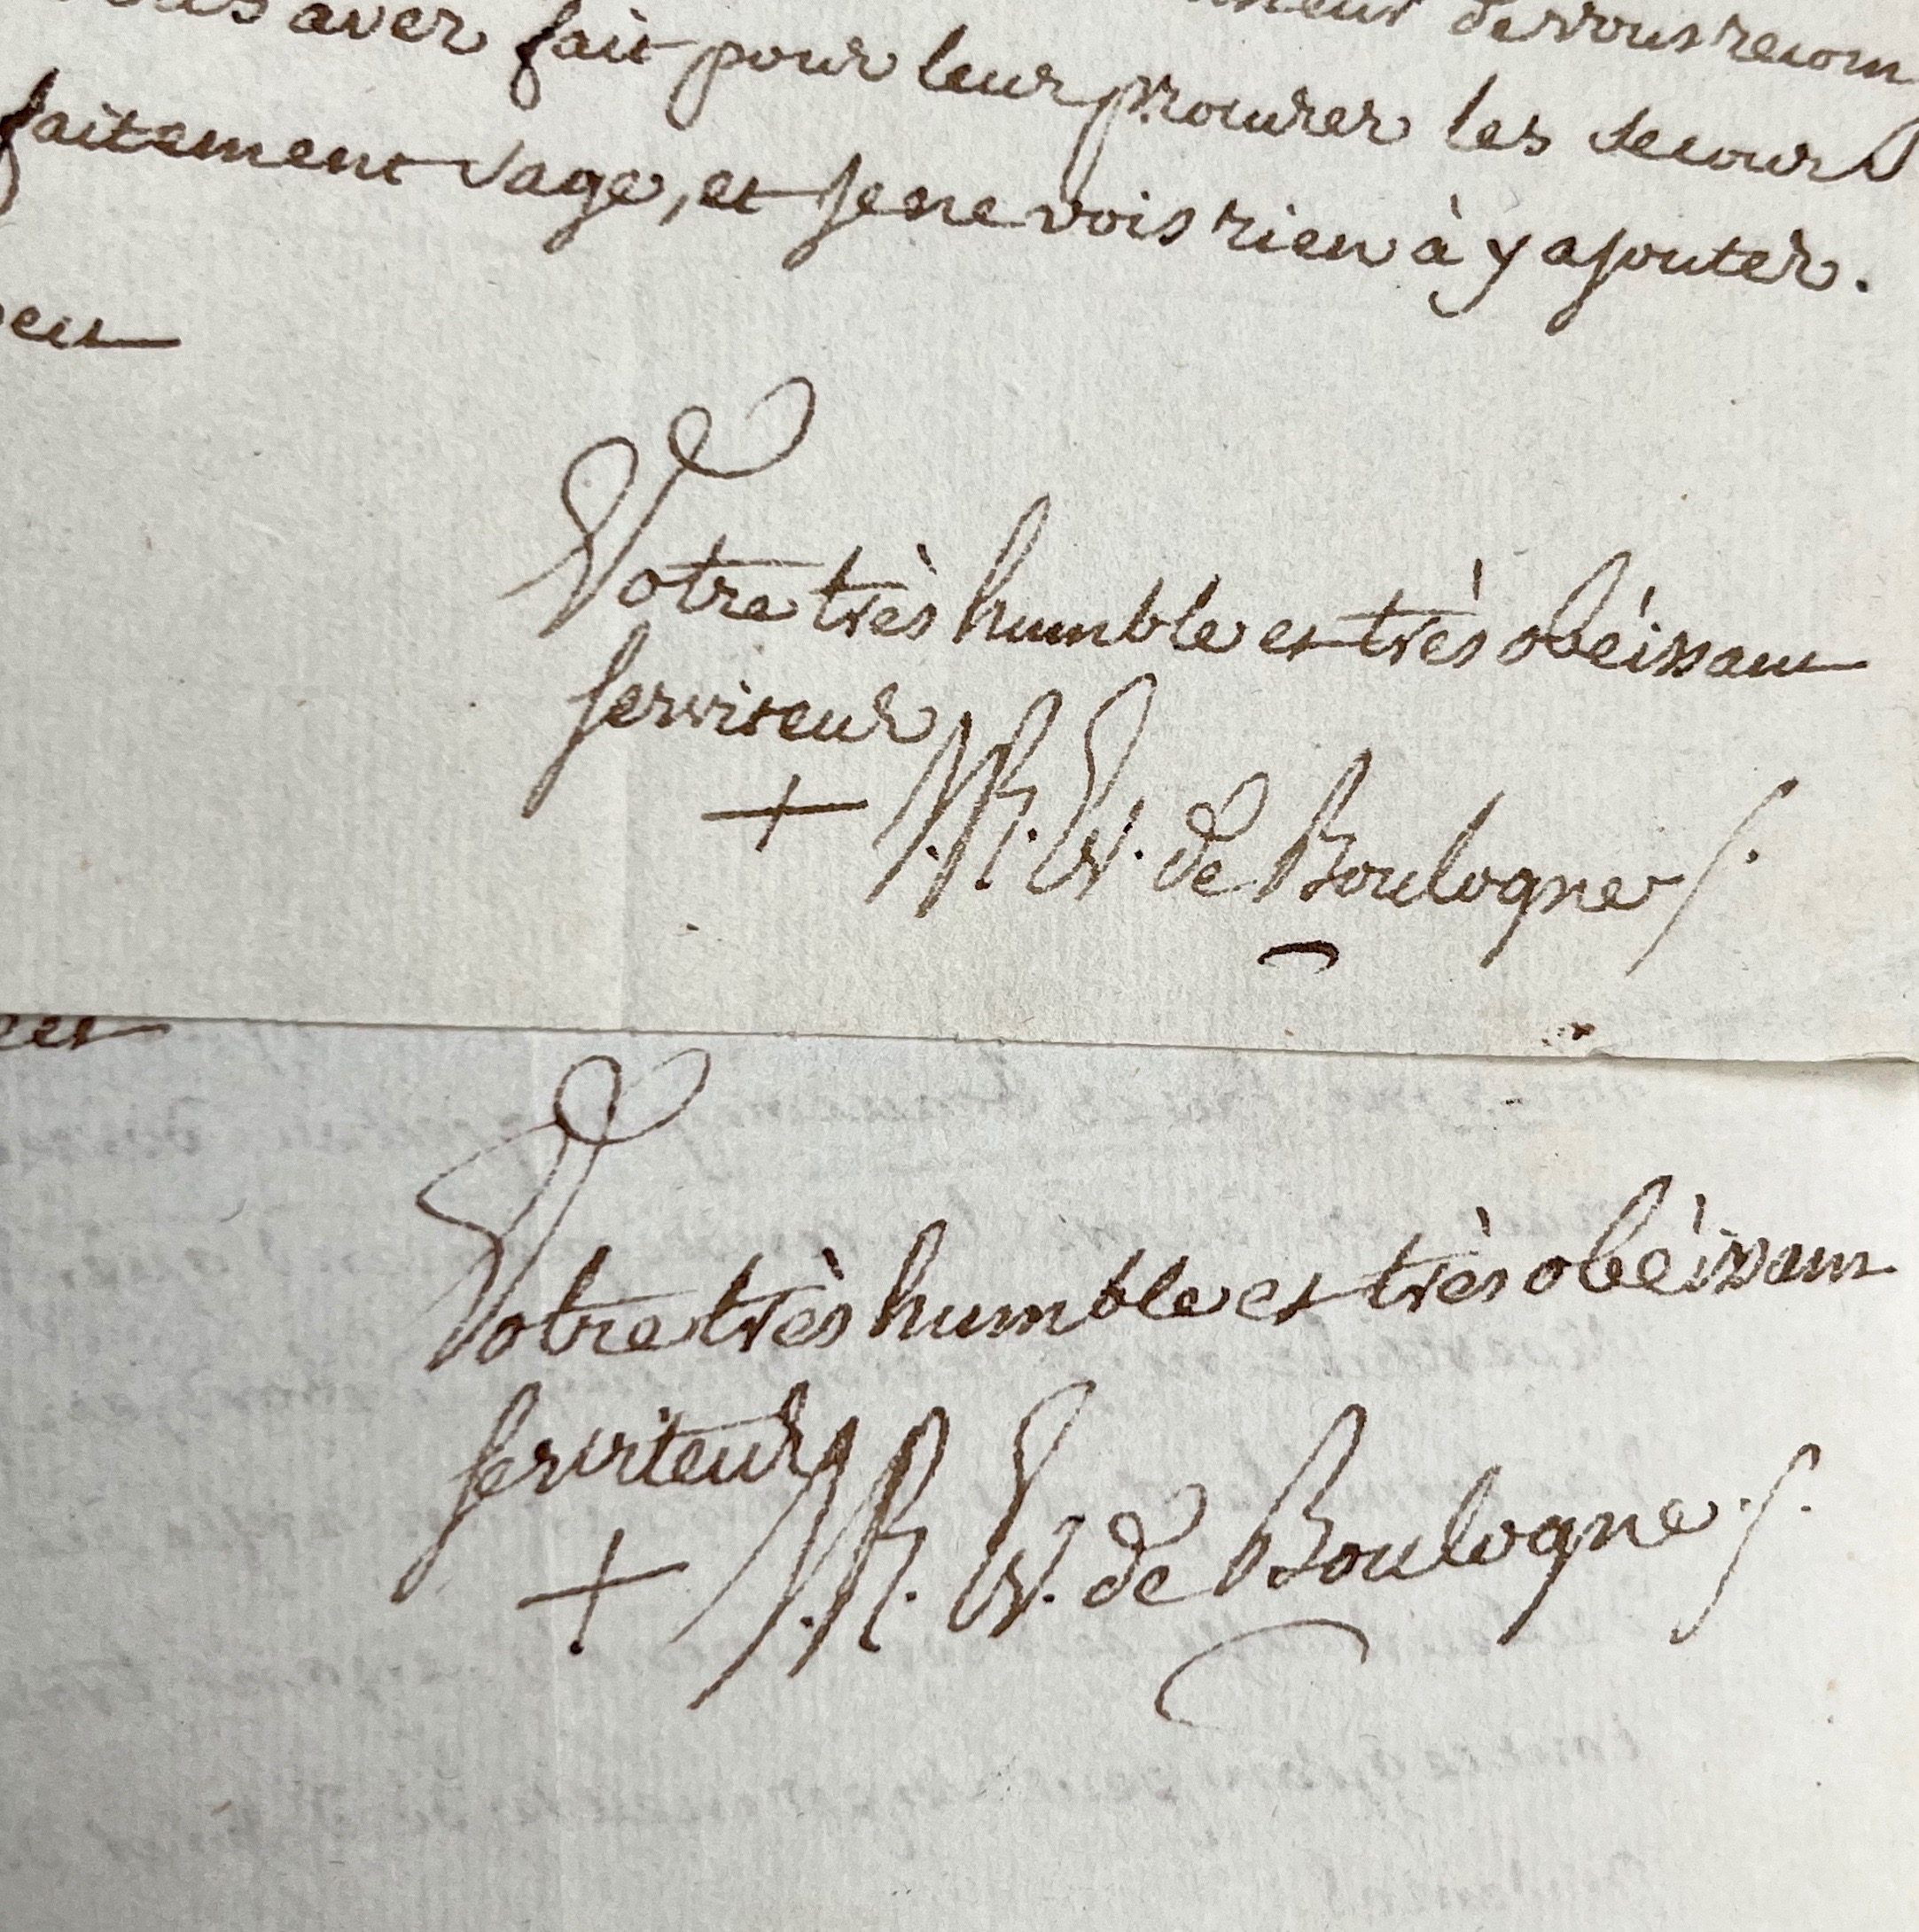 de vous recom
aver fait pour leur procurer les secours
faitement sage, et je ne vois rien à y ajouter.
Votre très humble et très obéissant
serviteur
+ J. R. Ev. de Boulogne
Votre très humble et très obéissant
serviteur
+ J. R. Ev. de Boulogne